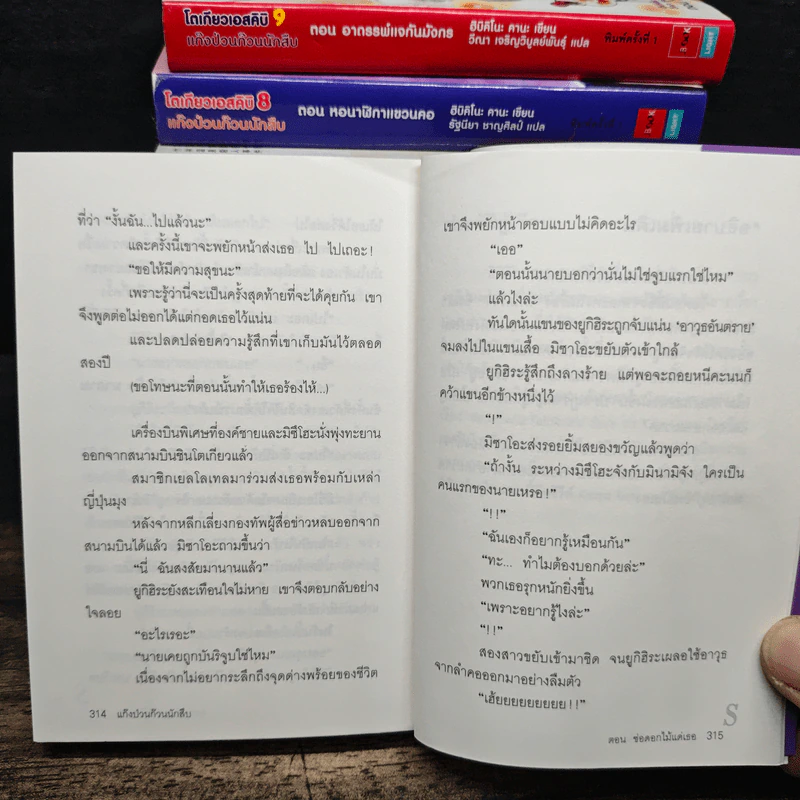 โตเกียวเอสคิป 9
แก๊งป่วนก๊วนนักสืบ
ตอน อาถรรพ์แจกันมังกร
ฮิบิคิโนะ คานะ เขียน
วีณา เจริญวิบูลย์พันธุ์ แปล
พิมพ์ครั้งที่ 1
LIGHT
โตเกียวเอสคิป 8
แก๊งป่วนก๊วนนักสืบ
ตอน หอนาฬิกาแขวนคอ
ฮิบิคิโนะ คานะ เขียน
รัฐนียา ชาญศิลป์ แปล
LIGHT
ที่ว่า “งั้นฉัน...ไปแล้วนะ”
และครั้งนี้เขาจะพยักหน้าส่งเธอ ไป ไปเถอะ!
“ขอให้มีความสุขนะ”
เพราะรู้ว่านี่จะเป็นครั้งสุดท้ายที่จะได้คุยกัน เขา
จึงพูดต่อไม่ออกได้แต่กอดเธอไว้แน่น
และปลดปล่อยความรู้สึกที่เขาเก็บมันไว้ตลอด
สองปี
(ขอโทษนะที่ตอนนั้นทำให้เธอร้องไห้...)
เครื่องบินพิเศษที่องค์ชายและมิซึโฮะนั่งพุ่งทะยาน
ออกจากสนามบินชินโตเกียวแล้ว
สมาชิกเยลโลเทลมาร่วมส่งเธอพร้อมกับเหล่า
ญี่ปุ่นมุง
หลังจากหลีกเลี่ยงกองทัพผู้สื่อข่าวหลบออกจาก
สนามบินได้แล้ว มิซาโอะถามขึ้นว่า
“นี่ ฉันสงสัยมานานแล้ว”
ยูกิฮิระยังสะเทือนใจไม่หาย เขาจึงตอบกลับอย่าง
ใจลอย
“อะไรเรอะ”
“นายเคยถูกบันริจูบใช่ไหม”
เนื่องจากไม่อยากระลึกถึงจุดด่างพร้อยของชีวิต
314 แก๊งป่วนก๊วนนักสืบ
เขาจึงพยักหน้าตอบแบบไม่คิดอะไร
“เออ”
“ตอนนั้นนายบอกว่านั่นไม่ใช่จูบแรกใช่ไหม”
แล้วไงล่ะ
ทันใดนั้นแขนของยูกิฮิระถูกจับแน่น ‘อาวุธอันตราย’
จมลงไปในแขนเสื้อ มิซาโอะขยับตัวเข้าใกล้
ยูกิฮิระรู้สึกถึงลางร้าย แต่พอจะถอยหนีคะนนก็
คว้าแขนอีกข้างหนึ่งไว้
“!”
มิซาโอะส่งรอยยิ้มสยองขวัญแล้วพูดว่า
“ถ้างั้น ระหว่างมิซึโฮะจังกับมินามิจัง ใครเป็น
คนแรกของนายเหรอ!”
“!!”
“ฉันเองก็อยากรู้เหมือนกัน”
“ทะ... ทำไมต้องบอกด้วยล่ะ”
พวกเธอรุกหนักยิ่งขึ้น
“เพราะอยากรู้ไงล่ะ”
“!!”
สองสาวขยับเข้ามาชิด จนยูกิฮิระเผลอใช้อาวุธ
จากลำคอออกมาอย่างลืมตัว
“เฮ้ยยยยยยยยย!!”
S
ตอน ช่อดอกไม้แด่เธอ 315